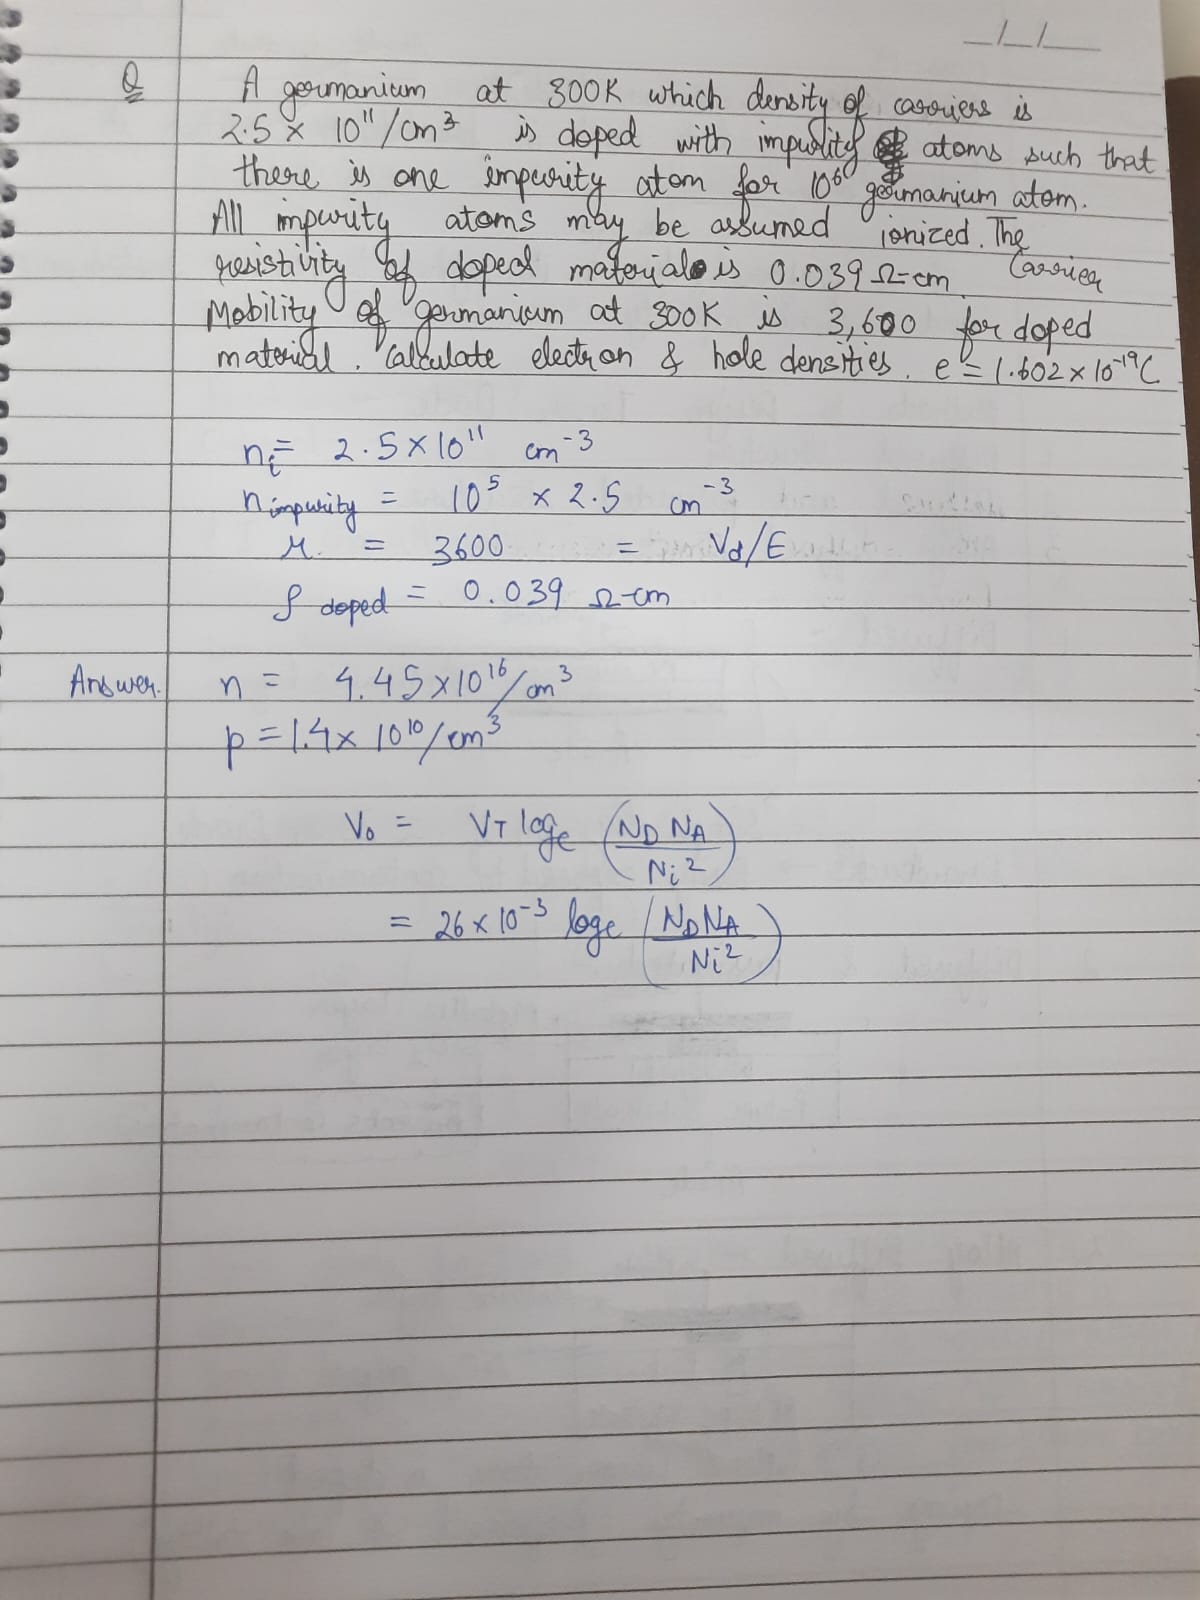 _/_/_
Q A germanium at 300K which density of carriers is
2.5 × 10¹¹/cm³ is doped with impurity atoms such that
there is one impurity atom for 10⁶ germanium atom.
All impurity atoms may be assumed ionized. The
resistivity of doped material is 0.039 Ω-cm. Carrier
Mobility of germanium at 300K is 3,600 for doped
material. Calculate electron & hole densities. e = 1.602 × 10⁻¹⁹C
nᵢ = 2.5 × 10¹¹ cm⁻³
n impurity = 10⁵ × 2.5 cm⁻³
μ = 3600 = Vd/E
ρ doped = 0.039 Ω-cm
Answer. n = 4.45 × 10¹⁶/cm³
p = 1.4 × 10¹⁰/cm³
V₀ = V_T logₑ (N_D N_A / Nᵢ²)
= 26 × 10⁻³ logₑ (N_D N_A / Nᵢ²)